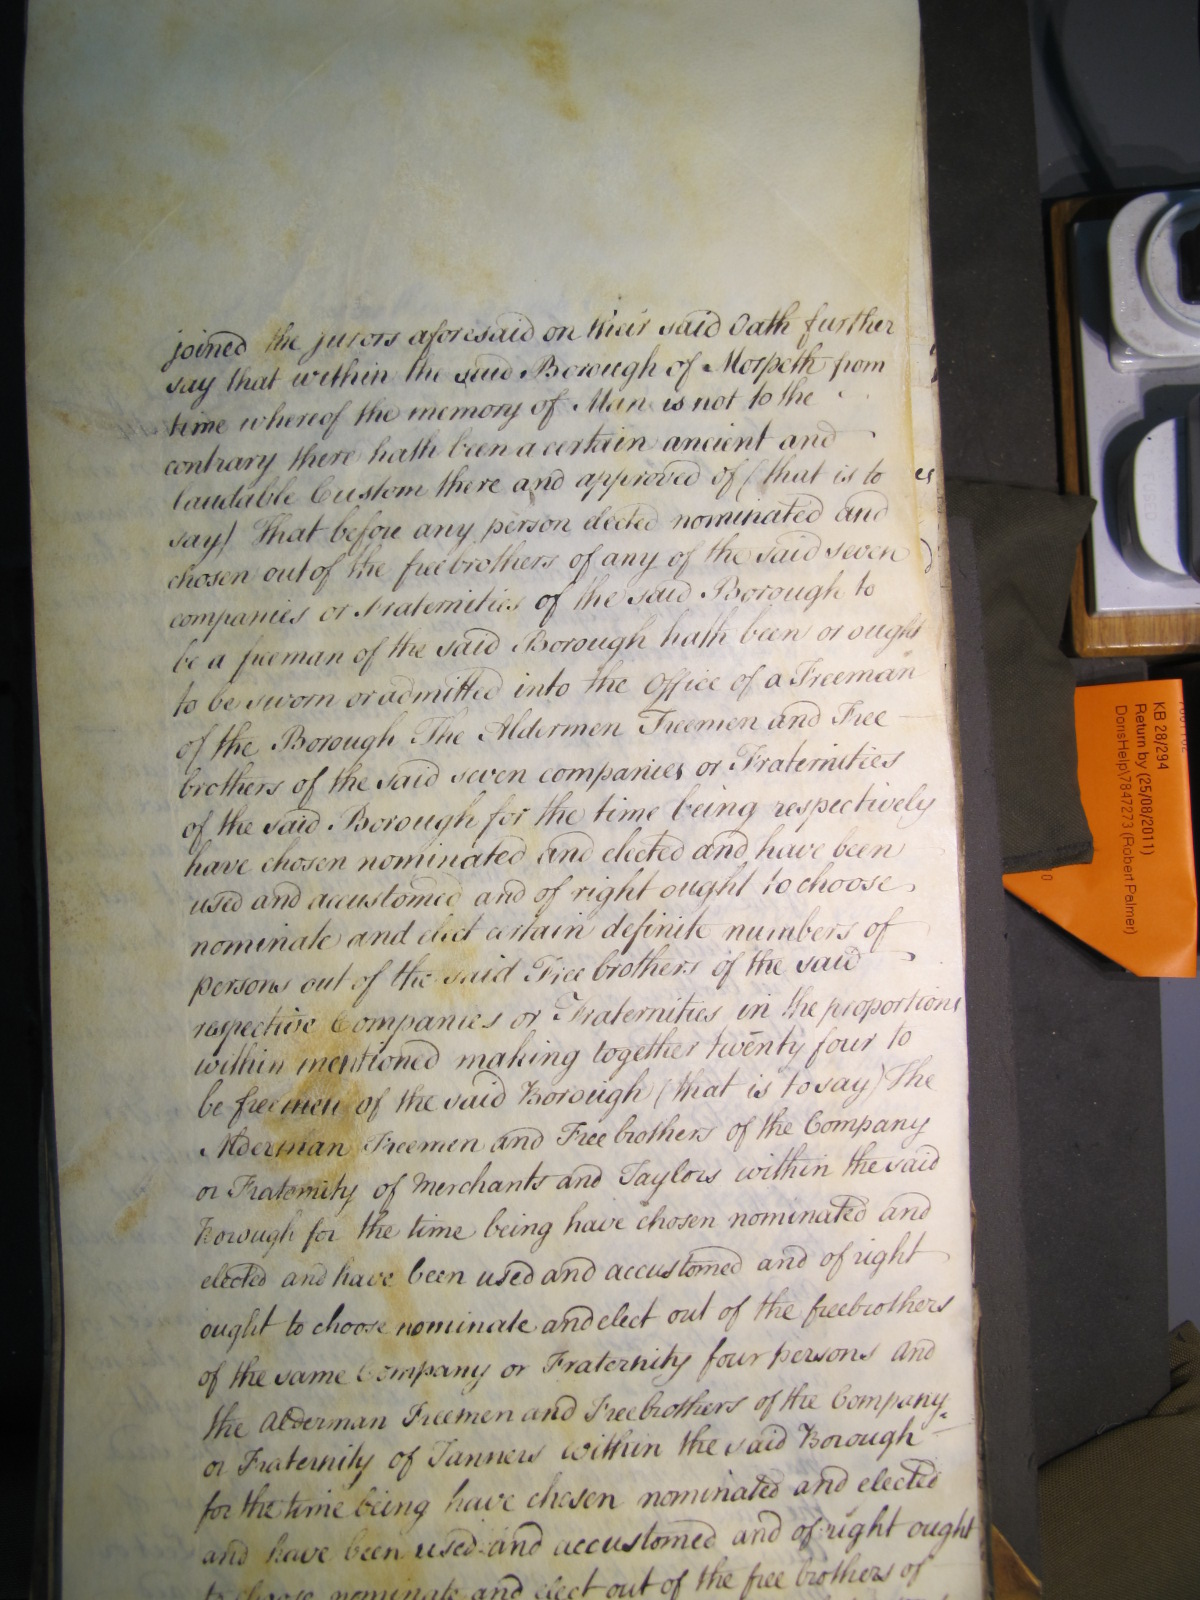 joined the jurors aforesaid on their said Oath further
say that within the said Borough of Morpeth from
time whereof the memory of Man is not to the
contrary there hath been a certain ancient and
laudable Custom there and approved of (that is to
say) That before any person elected nominated and
chosen out of the freebrothers of any of the said seven
companies or Fraternities of the said Borough to
be a freeman of the said Borough hath been or ought
to be sworn or admitted into the Office of a Freeman
of the Borough The Aldermen Freemen and Free
brothers of the said seven companies or Fraternities
of the said Borough for the time being respectively
have chosen nominated and elected and have been
used and accustomed and of right ought to choose
nominate and elect certain definite numbers of
persons out of the said Free brothers of the said
respective Companies or Fraternities in the proportions
within mentioned making together twenty four to
be freemen of the said Borough (that is to say) The
Alderman Freemen and Free brothers of the Company
or Fraternity of Merchants and Taylors within the said
Borough for the time being have chosen nominated and
elected and have been used and accustomed and of right
ought to choose nominate and elect out of the freebrothers
of the same Company or Fraternity four persons and
the Alderman Freemen and Freebrothers of the Company
or Fraternity of Tanners within the said Borough
for the time being have chosen nominated and elected
and have been used and accustomed and of right ought
to choose nominate and elect out of the free brothers of
es
KB 28/294
Return by (25/08/2011)
DorisHelp\7847273 (Robert Palmer)